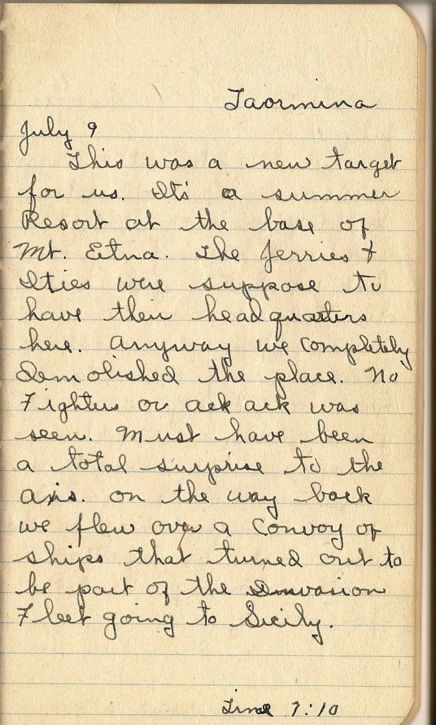 Taormina
July 9
This was a new target
for us. Its a summer
Resort at the base of
Mt. Eetna. The Jerries &
Ities were suppose to
have their headquarters
here. Anyway we completely
Demolished the place. No
Fighters or ack ack was
seen. Must have been
a total surprise to the
axis. On the way back
we flew over a convoy of
ships that turned out to
be part of the Invasion
Fleet going to Sicily.
Time 7:10